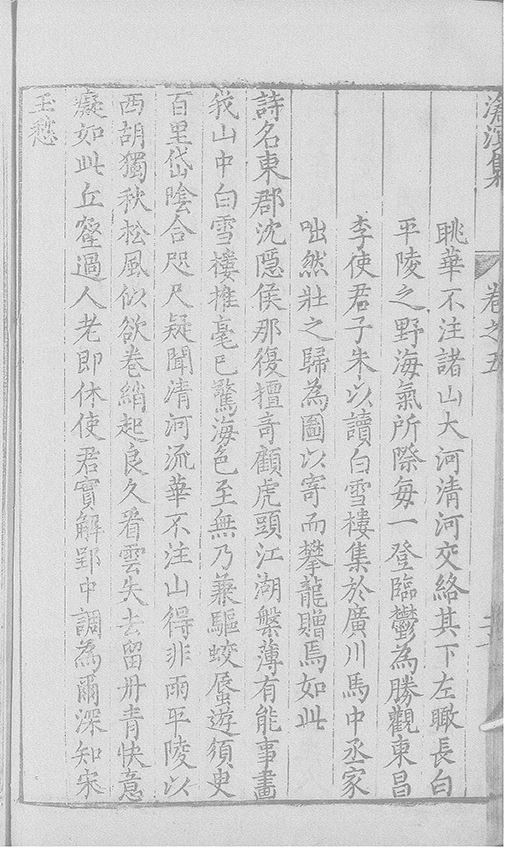 滄溟集
卷之五
眺華不注諸山大河清河交絡其下左瞰長白
平陵之野海氣所際每一登臨鬱為勝觀東昌
李使君子朱以讀白雪樓集於廣川馬中丞家
咄然壯之歸為圖以寄而攀龍贈焉如此
詩名東郡沈隱侯那復擅奇顧虎頭江湖槃薄有能事畫
我山中白雪樓握毫已驚海色至無乃兼驅蛟蜃遊須臾
百里岱陰合咫尺疑聞清河流華不注山得非雨平陵以
西胡獨秋松風似欲卷綃起良久看雲失去留丹青快意
癡如此丘壑過人老即休使君實解郢中調為爾深知宋
玉愁